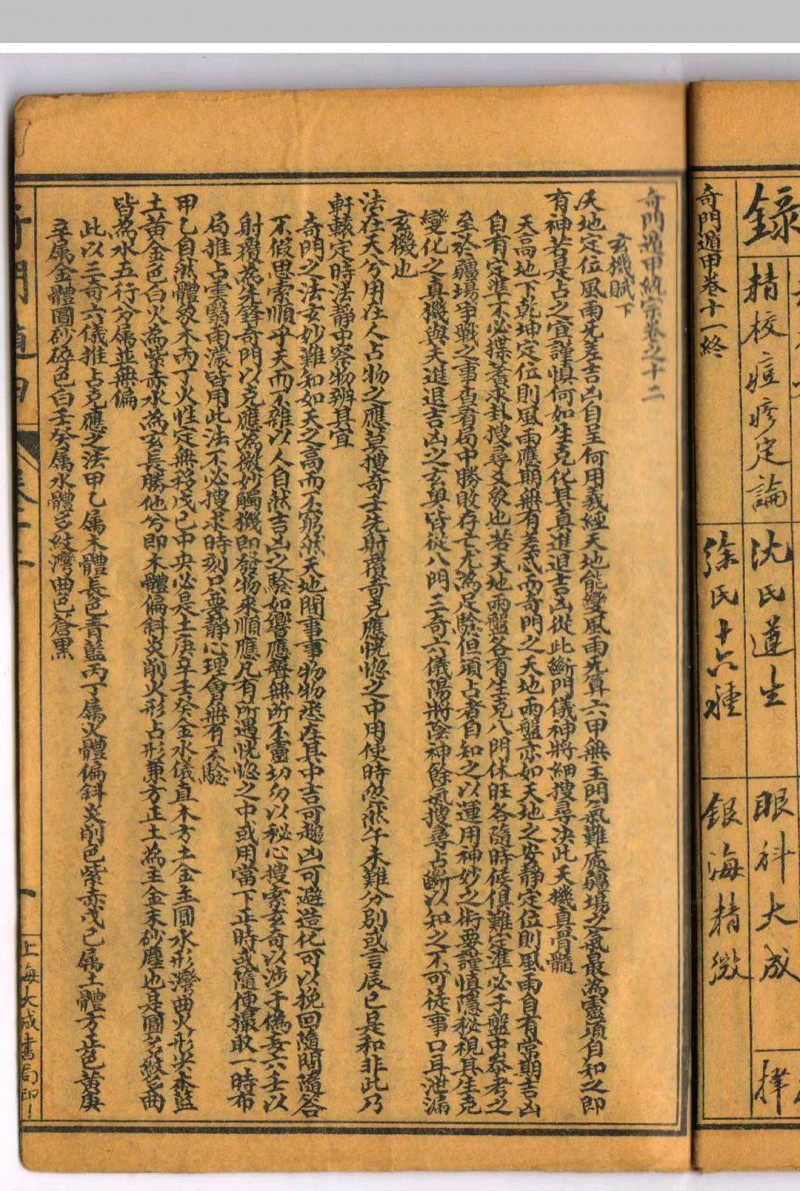 錄
精校痘疹定論
沈氏遵生
徐氏十六種
眼科大成
銀海精微
奇門遁甲卷十一終
奇門遁甲統宗卷之十二
玄機賦下
天地定位風雨無差吉凶自呈何用羲經天地能變風雨无算六甲無王門氣難處疆場之氣最為靈須自知之即
有神若是占之宜謹慎何如生克化其真進退吉凶從此斷門儀神將細搜尋決此天機真骨髓
天高地下乾坤定位則風雨應期無有差忒而奇門之天地兩盤亦如天地之安靜定位則風雨自有常期吉凶
自有定準不必揲蓍求卦搜尋爻象也若天地兩盤各有生克八門休旺各隨時候俱難定準必于盤中參考之
至於疆場爭戰之事查看局中勝敗存亡尤為足驗但須占者自知之以運用神妙之術要謹慎隱秘視其生克
變化之真機與夫進退吉凶之玄奧皆從八門三奇六儀陽將陰神餘氣搜尋占斷以知之不可徒事口耳泄漏
玄機也
法在天兮用在人占物之應莫搜奇壬先射覆奇克應恍惚之中用使時忽然午未難分別或言辰巳是和非此乃
軒轅定時法靜中容物辨其宜
奇門之法玄妙難知如天之高而不窮然天地間事事物物悉在其中吉可趨凶可避造化可以挽回隨問隨答
不假思索順乎天而不雜以人自然吉凶之驗如響應聲無所不靈切勿以秘心搜索玄奇以涉于偽妄六壬以
射覆為先鋒奇門以克應為微妙觸機即發物來順應凡有所遇恍惚之中或用當下正時或隨便撮取一時布
局推占雲霧雨濃皆用此法不必搜求時刻只要靜心理會無有不驗
甲乙自然體象木丙丁火性定無移戊己中央必是土庚辛壬癸金水儀直木方土金圭圓水形灣曲火形尖木藍
土黃金色白火為紫赤水為玄長勝他兮即木體偏斜炎削火形占形兼方正土為主金末砂塵也是圓多紋多曲
皆為水五行分屬並無偏
此以三奇六儀推占克應之法甲乙屬木體長色青藍丙丁屬火體偏斜炎削色紫赤戊己屬土體方正色黃庚
辛屬金體圓砂碎色白壬癸屬水體多紋灣曲色蒼黑
上海大成書局印